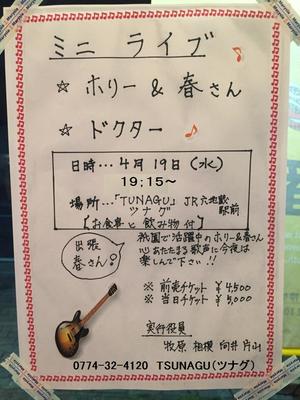 ミニ ライブ
☆ ホリー & 春さん
☆ ドクター
日時…4月19日(水)
19:15～
場所…「TUNAGU」JR六地蔵駅前
ツナグ
【お食事と飲み物付】
出張
春さん!
祇園で活躍中のホリー&春さん
心あたたまる歌声に今夜は
楽しんで下さい!!
※ 前売チケット ¥4500
※ 当日チケット ¥5,000
実行役員
牧原 相模 向井 片山
0774-32-4120 TSUNAGU(ツナグ)